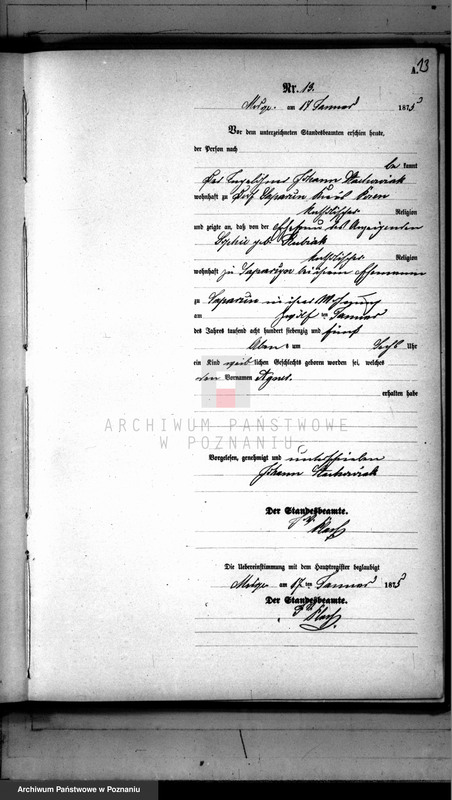 A. 13
Nr. 13.
am 17 Januar 1875
Vor dem unterzeichneten Standesbeamten erschien heute,
der Person nach
be kannt
Der Johann Stachowiak
wohnhaft zu Dorf Kreis Posen
katholischer Religion
und zeigte an, daß von der Ehefrau des Anzeigenden
Sophie geb.
katholischer Religion
wohnhaft zu bei ihrem Ehemanne
zu in ihrer Wohnung
am zwölf ten Januar
des Jahres tausend acht hundert siebenzig und fünf
Abends um sechs Uhr
ein Kind weib lichen Geschlechts geboren worden sei, welches
den Vornamen Agnes
erhalten habe
ARCHIWUM PAŃSTWOWE
W POZNANIU
Vorgelesen, genehmigt und unterschrieben
Johann Stachowiak
Der Standesbeamte.
Die Uebereinstimmung mit dem Hauptregister beglaubigt
am 17 ten Januar 1875
Der Standesbeamte.
Archiwum Państwowe w Poznaniu